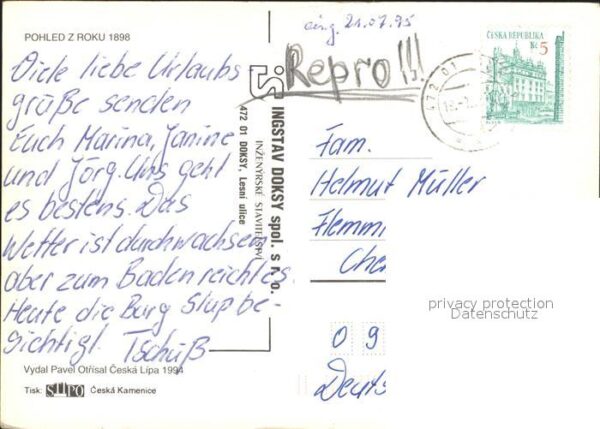 POHLED Z ROKU 1898
eing. 21.07.95
Repro!!!
ČESKÁ REPUBLIKA
Kč 5
472 01
Viele liebe Urlaubs
grüße senden
Euch Marina, Janine
und Jörg. Uns geht
es bestens. Das
Wetter ist durchwachsen
aber zum Baden reicht es.
Heute die Burg Slup be-
sichtigt. Tschüß
INGSTAV DOKSY spol. s r. o.
INŽENÝRSKÉ STAVITELSTVÍ
472 01 DOKSY, Lesní ulice
Fam.
Helmut Müller
Flemmi
Che
0 9
Deuts
privacy protection
Datenschutz
Vydal Pavel Otřísal Česká Lípa 1994
Tisk: Česká Kamenice